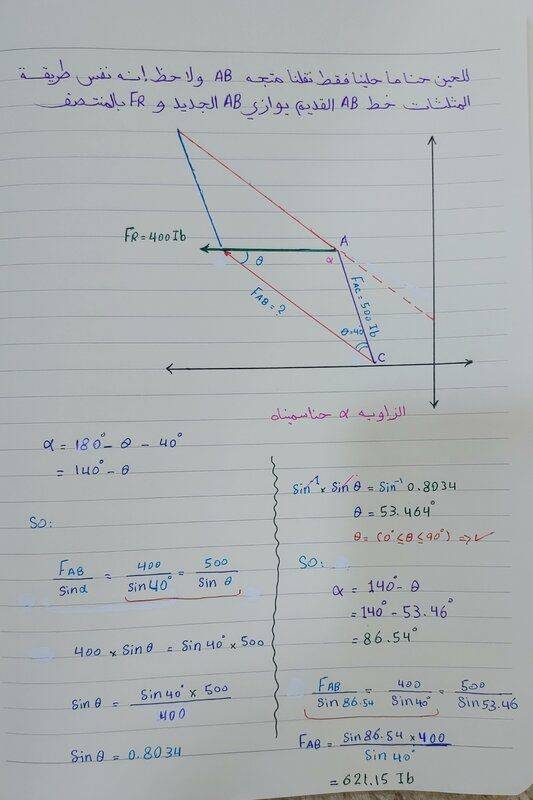 للحين حنا ما حلينا فقط نقلنا متجه AB ولاحظ إنه نفس طريقة
المثلثات خط AB القديم يوازي AB الجديد و FR بالمنتصف
FR = 400 Ib
A
θ
α
FAB = ?
FAC = 500 Ib
θ = 40°
C
الزاويه α حنا سميناه
α = 180° - θ - 40°
= 140° - θ
SO:
FAB / sin α = 400 / sin 40° = 500 / sin θ
400 × sin θ = sin 40° × 500
sin θ = sin 40° × 500 / 400
sin θ = 0.8034
sin⁻¹ × sin θ = sin⁻¹ 0.8034
θ = 53.464°
θ = (0° ≤ θ ≤ 90°) ⇒ ✓
SO:
α = 140° - θ
= 140° - 53.46°
= 86.54°
FAB / sin 86.54 = 400 / sin 40° = 500 / sin 53.46
FAB = sin 86.54 × 400 / sin 40°
= 621.15 Ib